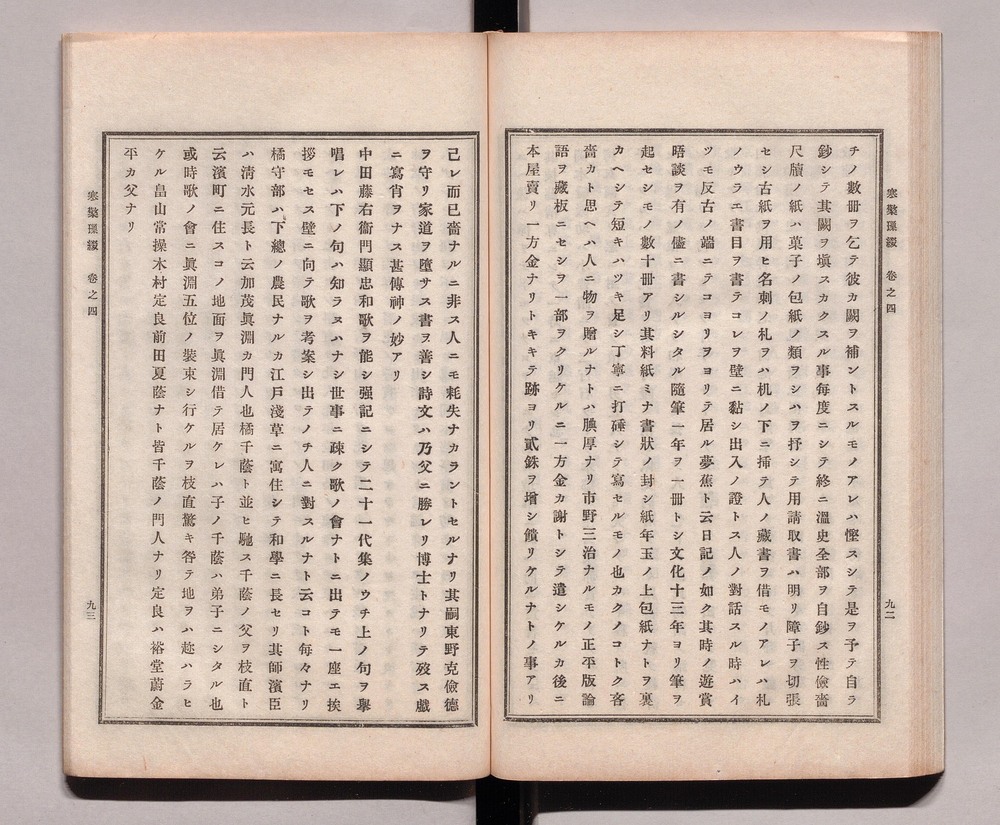 寒檠璅綴 卷之四
九二
チノ數冊ヲ乞テ彼カ闕ヲ補ントスルモノアレハ慳スシテ是ヲ予テ自ラ
鈔シテ其闕ヲ塡スカクスル事每度ニシテ終ニ溫史全部ヲ自鈔ス性儉嗇
尺牘ノ紙ハ菓子ノ包紙ノ類ヲシハヲ抒シテ用請取書ハ明リ障子ヲ切張
セシ古紙ヲ用ヒ名刺ノ札ヲハ机ノ下ニ揷テ人ノ藏書ヲ借モノアレハ札
ノウラエ書目ヲ書テコレヲ壁ニ黏シ出入ノ證トス人ノ對話スル時ハイ
ツモ反古ノ端ニテコヨリヲヨリテ居ル夢蕉ト云日記ノ如ク其時ノ遊賞
晤談ヲ有ノ儘ニ書シルシタル隨筆一年ヲ一冊トシ文化十三年ヨリ筆ヲ
起セシモノ數十冊アリ其料紙ミナ書狀ノ封シ紙年玉ノ上包紙ナトヲ裏
カヘシテ短キハツキ足シ丁寧ニ打砸シテ寫セルモノ也カクノコトク吝
嗇カト思ヘハ人ニ物ヲ贈ルナトハ腆厚ナリ市野三治ナルモノ正平版論
語ヲ藏板ニセシヲ一部ヲクリケルニ一方金カ謝トシテ遣シケルカ後ニ
本屋賣リ一方金ナリトキキテ跡ヨリ貳銖ヲ增シ饋リケルナトノ事アリ
己レ而已嗇ナルニ非ス人ニモ耗失ナカラントセルナリ其嗣東野克儉德
ヲ守リ家道ヲ墮サス書ヲ善シ詩文ハ乃父ニ勝レリ博士トナリテ歿ス戲
ニ寫肖ヲナス甚傳神ノ妙アリ
中田藤右衞門顯忠和歌ヲ能シ强記ニシテ二十一代集ノウチ上ノ句ヲ擧
唱レハ下ノ句ハ知ラヌハナシ世事ニ疎ク歌ノ會ナトニ出テモ一座エ挨
拶モセス壁ニ向テ歌ヲ考案シ出テノチ人ニ對スルナト云コト每々ナリ
橘守部ハ下總ノ農民ナルカ江戶淺草ニ寓住シテ和學ニ長セリ其師濱臣
ハ淸水元長ト云加茂眞淵カ門人也橘千蔭ト並ヒ馳ス千蔭ノ父ヲ枝直ト
云濱町ニ住スコノ地面ヲ眞淵借テ居ケレハ子ノ千蔭ハ弟子ニシタル也
或時歌ノ會ニ眞淵五位ノ裝束シ行ケルヲ枝直驚キ咎テ地ヲハ趁ハラヒ
ケル畠山常操木村定良前田夏蔭ナト皆千蔭ノ門人ナリ定良ハ裕堂蔚金
平カ父ナリ
寒檠璅綴 卷之四
九三